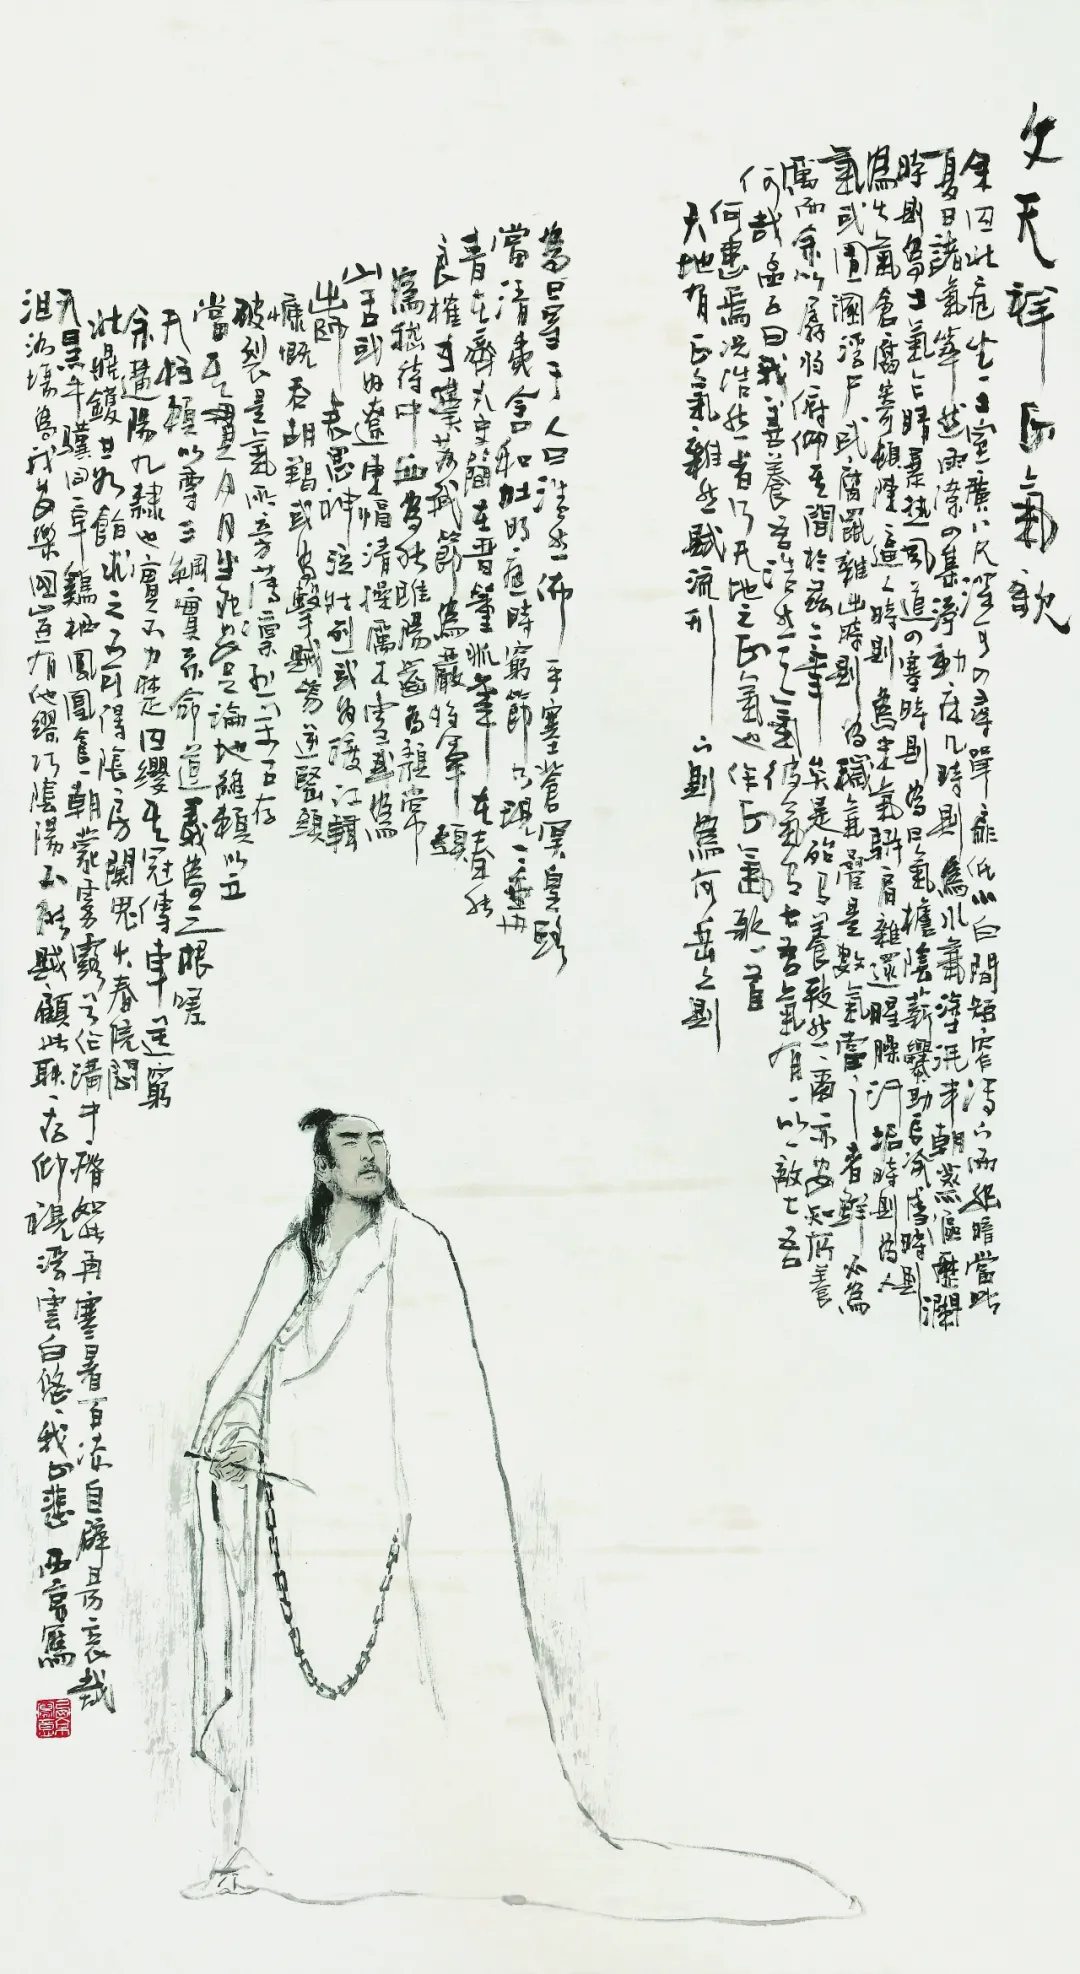 文天祥正氣歌
余囚北庭坐一土室廣八尺深可四尋單扉低小白間短窄污下而幽暗當此
夏日諸氣萃然雨潦四集浮動床几時則為水氣塗泥半朝蒸漚歷瀾
時則為土氣乍晴暴熱風道四塞時則為日氣檐陰薪爨助長炎虐時則
為火氣倉腐寄頓陳陳逼人時則為米氣駢肩雜遝腥臊汙垢時則為人
氣或圊溷浮尸或腐鼠雜出時則為穢氣疊是數氣當之者鮮不為
厲而余以孱弱俯仰其間於茲二年矣是殆有養致然然爾亦安知所養
何哉孟子曰我善養吾浩然之氣彼氣有七吾氣有一以一敵七吾
何患焉況浩然者乃天地之正氣也作正氣歌一首
天地有正氣雜然賦流形下則為河岳上則
為日星于人曰浩然沛乎塞蒼冥皇路
當清夷含和吐明庭時窮節乃現一一垂丹
青在齊太史簡在晉董狐筆在秦張
良椎在漢蘇武節為嚴將軍頭
為嵇侍中血為張睢陽齒為顏常
山舌或為遼東帽清操厲冰雪或為
出師表鬼神泣壯烈或為渡江楫
慷慨吞胡羯或為擊賊笏逆豎頭
破裂是氣所旁薄凜烈萬古存
當其貫日月生死安足論地維賴以立
天柱賴以尊三綱實系命道義為之根嗟
余遘陽九隸也實不力楚囚纓其冠傳車送窮
北鼎鑊甘如飴求之不可得陰房闃鬼火春院閟
天黑牛驥同一皁雞棲鳳凰食一朝蒙霧露分作溝中瘠如此再寒暑百沴自辟易哀哉
沮洳場為我安樂國豈有他繆巧陰陽不能賊顧此耿耿存仰視浮雲白悠悠我心悲 西京寫